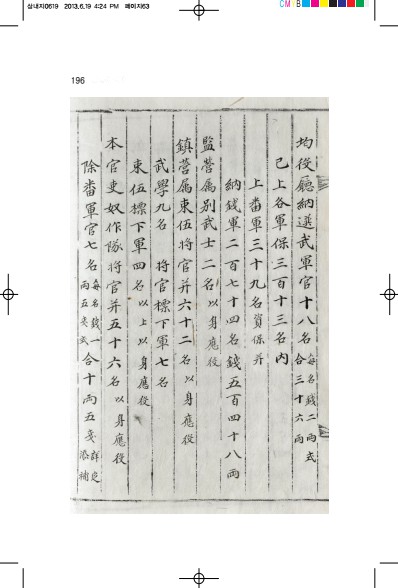 삼내지0619 2013.6.19 4:24 PM 페이지63
CM B
196
均役廳納選武軍官十八名 每名錢二兩式 合三十六兩
已上各軍保三百十三名內
上番軍三十九名 資保并
納錢軍二百七十四名錢五百四十八兩
監營屬別武士二名 以身應役
鎭營屬束伍將官并六十二名 以身應役
武學九名 將官標下軍七名
束伍標下軍四名 以上以身應役
本官吏奴作隊將官并五十六名 以身應役
除番軍官七名 每名錢一兩五戔式 合十兩五戔 添補